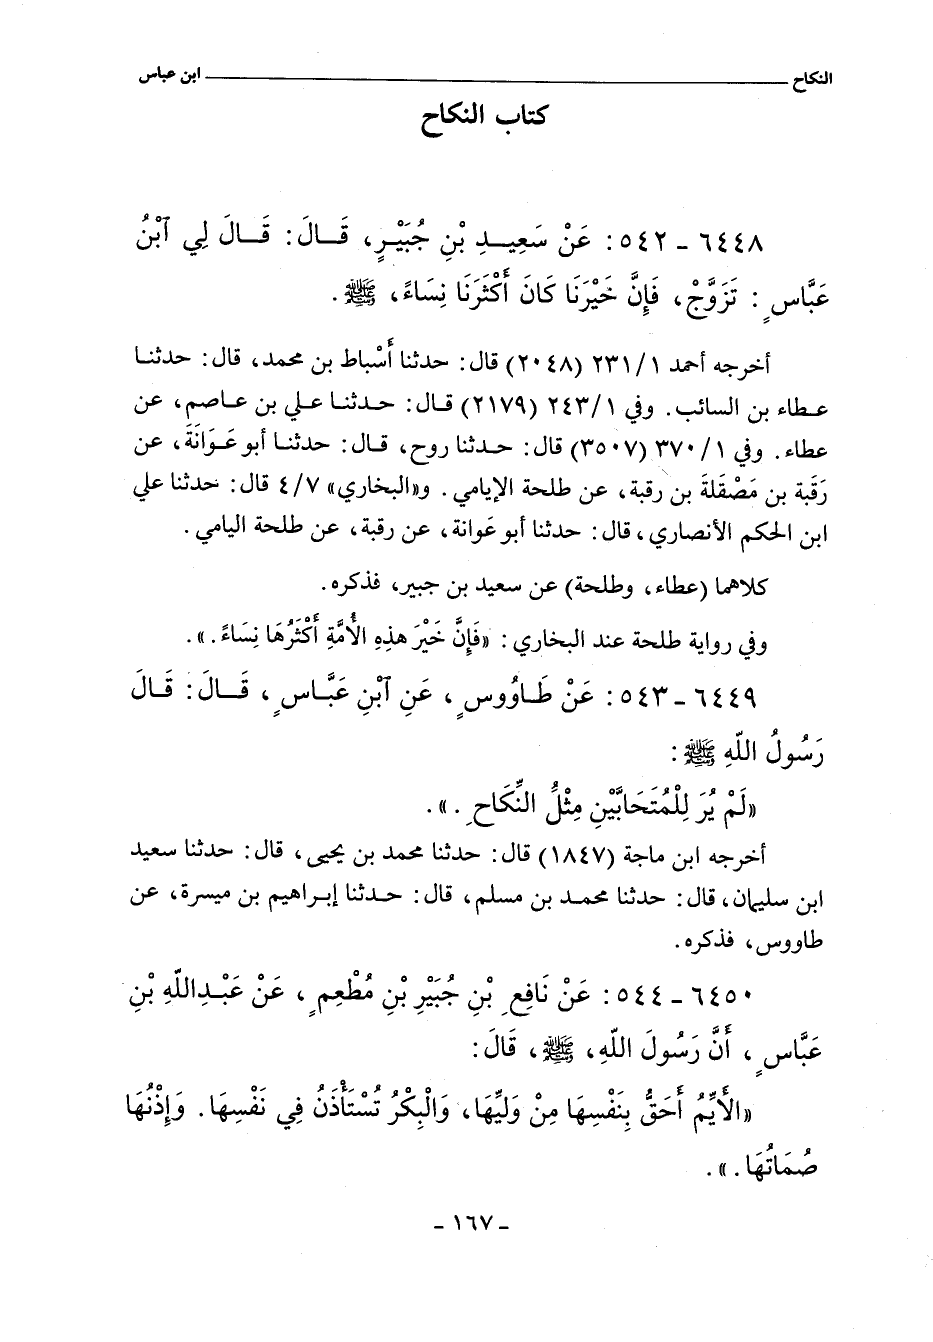 النكاح ابن عباس
كتاب النكاح
٦٤٤٨ - ٥٤٢: عَنْ سَعِيدِ بْنِ جُبَيْرٍ، قَالَ: قَالَ لِي ٱبْنُ
عَبَّاسٍ: تَزَوَّجْ، فَإِنَّ خَيْرَنَا كَانَ أَكْثَرَنَا نِسَاءً، ﷺ.
أخرجه أحمد ٢٣١/١ (٢٠٤٨) قال: حدثنا أَسْباط بن محمد، قال: حدثنا
عطاء بن السائب. وفي ٢٤٣/١ (٢١٧٩) قال: حدثنا علي بن عاصم، عن
عطاء. وفي ٣٧٠/١ (٣٥٠٧) قال: حدثنا روح، قال: حدثنا أبو عَوَانَةَ، عن
رَقَبة بن مَصْقَلَةَ بن رقبة، عن طلحة الإيامي. و«البخاري» ٤/٧ قال: حدثنا علي
ابن الحكم الأنصاري، قال: حدثنا أبو عَوانة، عن رقبة، عن طلحة اليامي.
كلاهما (عطاء، وطلحة) عن سعيد بن جبير، فذكره.
وفي رواية طلحة عند البخاري: «فَإِنَّ خَيْرَ هذِهِ الأُمَّةِ أَكْثَرُهَا نِسَاءً.».
٦٤٤٩ - ٥٤٣: عَنْ طَاوُوسٍ، عَنِ ٱبْنِ عَبَّاسٍ، قَالَ: قَالَ
رَسُولُ اللّهِ ﷺ:
«لَمْ يُرَ لِلْمُتَحَابَّيْنِ مِثْلُ النِّكَاحِ.».
أخرجه ابن ماجة (١٨٤٧) قال: حدثنا محمد بن يحيى، قال: حدثنا سعيد
ابن سليمان، قال: حدثنا محمد بن مسلم، قال: حدثنا إبراهيم بن ميسرة، عن
طاووس، فذكره.
٦٤٥٠ - ٥٤٤: عَنْ نَافِعِ بْنِ جُبَيْرِ بْنِ مُطْعِمٍ، عَنْ عَبْدِاللّهِ بْنِ
عَبَّاسٍ، أَنَّ رَسُولَ اللّهِ، ﷺ، قَالَ:
«الأَيِّمُ أَحَقُّ بِنَفْسِهَا مِنْ وَلِيِّهَا، وَالْبِكْرُ تُسْتَأْذَنُ فِي نَفْسِهَا. وَإِذْنُهَا
صُمَاتُهَا.».
- ١٦٧ -